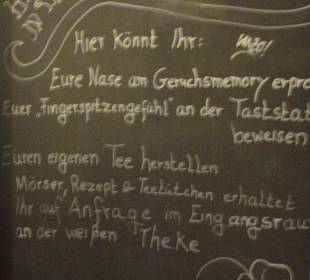 Hier könnt Ihr:
Eure Nase am Geruchsmemory erpro
Euer "Fingerspitzengefühl" an der Taststat
beweisen
Euren eigenen Tee herstellen
Mörser, Rezept & Teetütchen erhaltet
Ihr auf Anfrage im Eingangsrau
an der weißen Theke